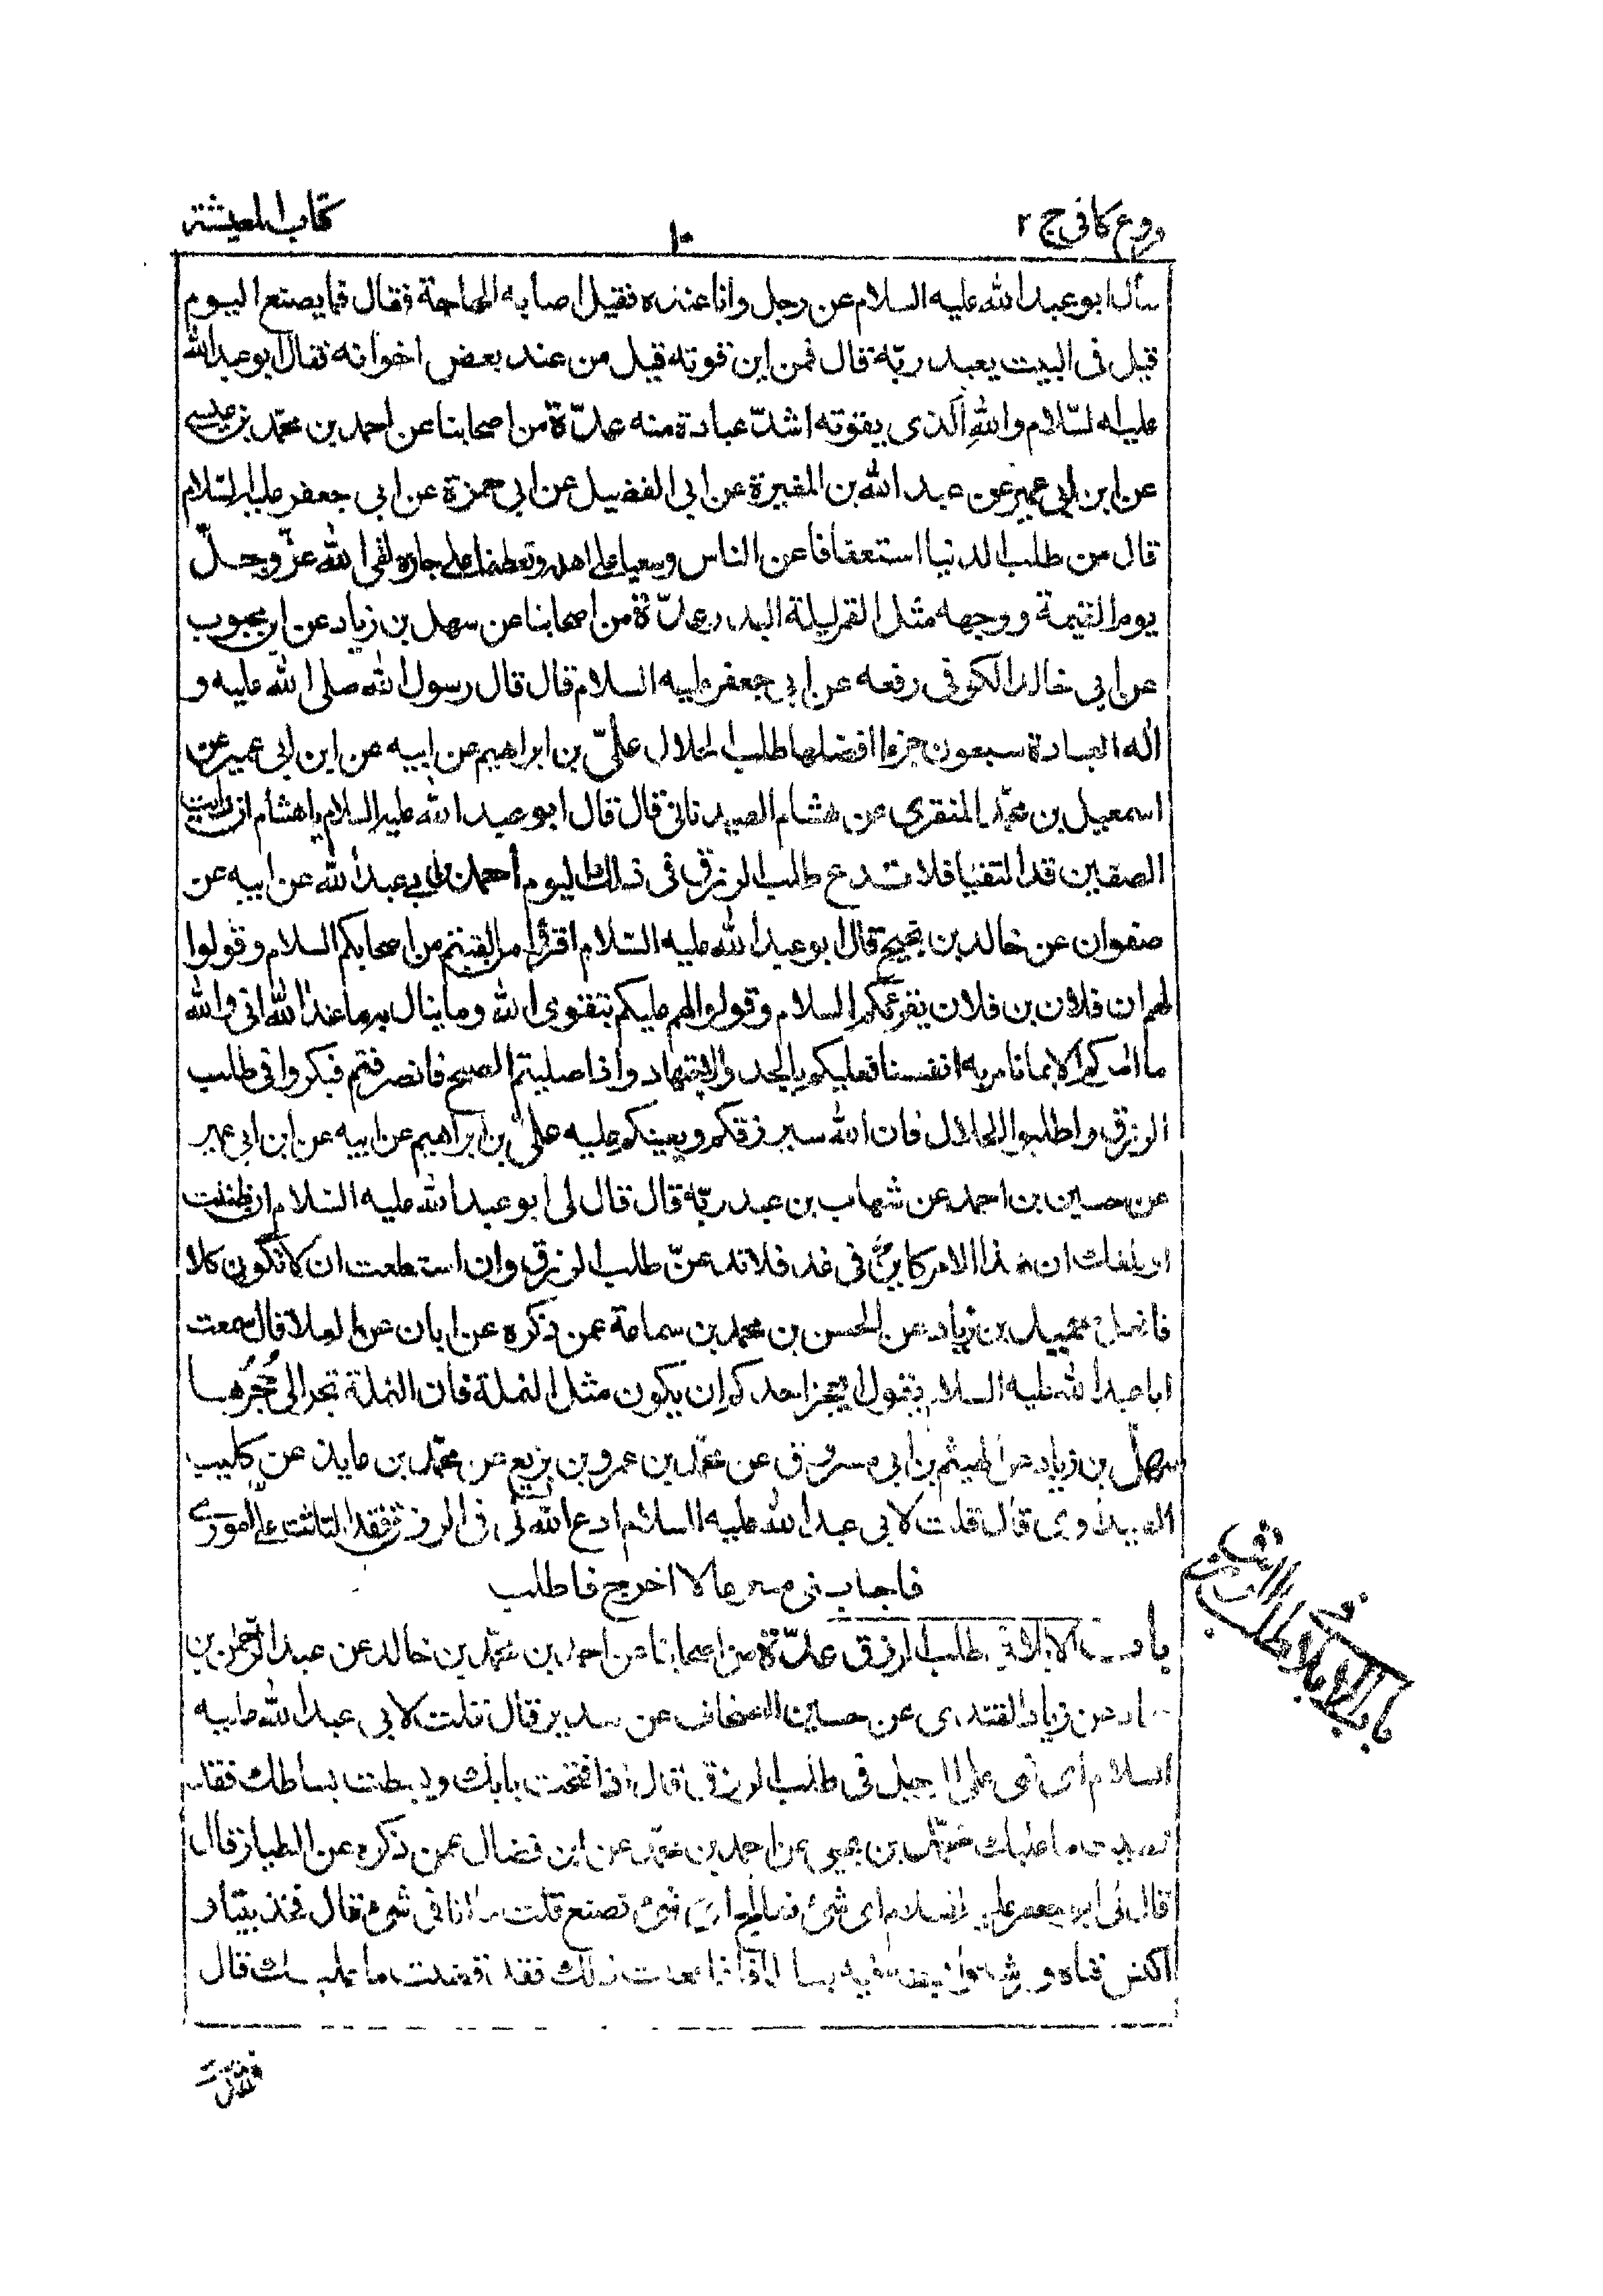 فروع كافى ج ٢
١٠
كتاب المعيشة
سأل ابو عبد الله عليه السلام عن رجل وانا عنده فقيل اصابه الحاجة فقال فما يصنع اليوم
قيل فى البيت يعبد ربّه قال فمن اين قوته قيل من عند بعض اخوانه فقال ابو عبد الله
عليه السّلام والله الّذى يقوته اشدّ عبادة منه عدّة من اصحابنا عن احمد بن محمّد بن عيسى
عن ابن ابى عمير عن عبد الله بن المغيرة عن ابى الفضيل عن ابى حمزة عن ابى جعفر عليه السّلام
قال من طلب الدنيا استعفافا عن الناس وسعيا على اهله وتعطفا على جاره لقى الله عزّ وجلّ
يوم القيمة ووجهه مثل القمر ليلة البدر عدّة من اصحابنا عن سهل بن زياد عن ابن محبوب
عن ابى خالد الكوفى رفعه عن ابى جعفر عليه السلام قال قال رسول الله صلى الله عليه و
اله العبادة سبعون جزءا افضلها طلب الحلال علىّ بن ابراهيم عن ابيه عن ابن ابى عمير عن
اسمعيل بن محمّد المنقرى عن هشام الصيدنانى قال قال ابو عبد الله عليه السلام يا هشام ان رايت
الصفين قد التقيا فلا تدع طلب الرزق فى ذلك اليوم احمد بن ابى عبد الله عن ابيه عن
صفوان عن خالد بن نجيح قال ابو عبد الله عليه السّلام اقرؤا من لقيتم من اصحابكم السلام وقولوا
لهم ان فلان بن فلان يقرئكم السلام وقولوا لهم عليكم بتقوى الله وما ينال به ما عند الله انى والله
ما امركم الا بما نامر به انفسنا فعليكم بالجد والاجتهاد واذا صليتم الصبح فانصرفتم فبكروا فى طلب
الرزق واطلبوا الحلال فان الله سيرزقكم ويعينكم عليه علىّ بن ابراهيم عن ابيه عن ابن ابى عمير
عن حسين بن احمد عن شهاب بن عبد ربّه قال قال لى ابو عبد الله عليه السّلام ان ظننت
او بلغك ان هذا الامر كاين فى غد فلا تدعنّ طلب الرزق وان استطعت ان لا تكون كلا
فافعل حميد بن زياد عن الحسن بن محمد بن سماعة عمن ذكره عن ابان عن العلا قال سمعت
ابا عبد الله عليه السلام يقول ايعجز احدكم ان يكون مثل النملة فان النملة تجر الى جُحرُها
سهل بن زياد عن الهيثم بن ابى مسروق عن محمّد بن عمرو بن بزيع عن محمّد بن عايذ عن كليب
الصيداوى قال قلت لابى عبد الله عليه السلام ادع الله لى فى الرزق فقد التاثت علىّ امورى
فاجابنى مسرعا لا اخرج فاطلب
باب الابلاء فى طلب الرزق عدّة من اصحابنا عن احمد بن محمّد بن خالد عن عبد الرّحمن بن
عن زياد القندى عن حسين الصحاف عن سدير قال قلت لابى عبد الله عليه
السلام اى شى على الرجل فى طلب الرزق فقال اذا فتحت بابك وبسطت بساطك فقد
قضيت ما عليك محمّد بن يحيى عن احمد بن محمّد عن ابن فضال عمن ذكره عن الطيار قال
قال لى ابو جعفر عليه السلام اى شئ تعالج اى شئ تصنع قلت ما انا فى شئ قال فخذ بيتا و
اكنس فناه و رشه وابسط فيه بساطا فاذا فعلت ذلك فقد قضيت ما عليك قال
باب الابلاء فى طلب الرزق
فقدمت